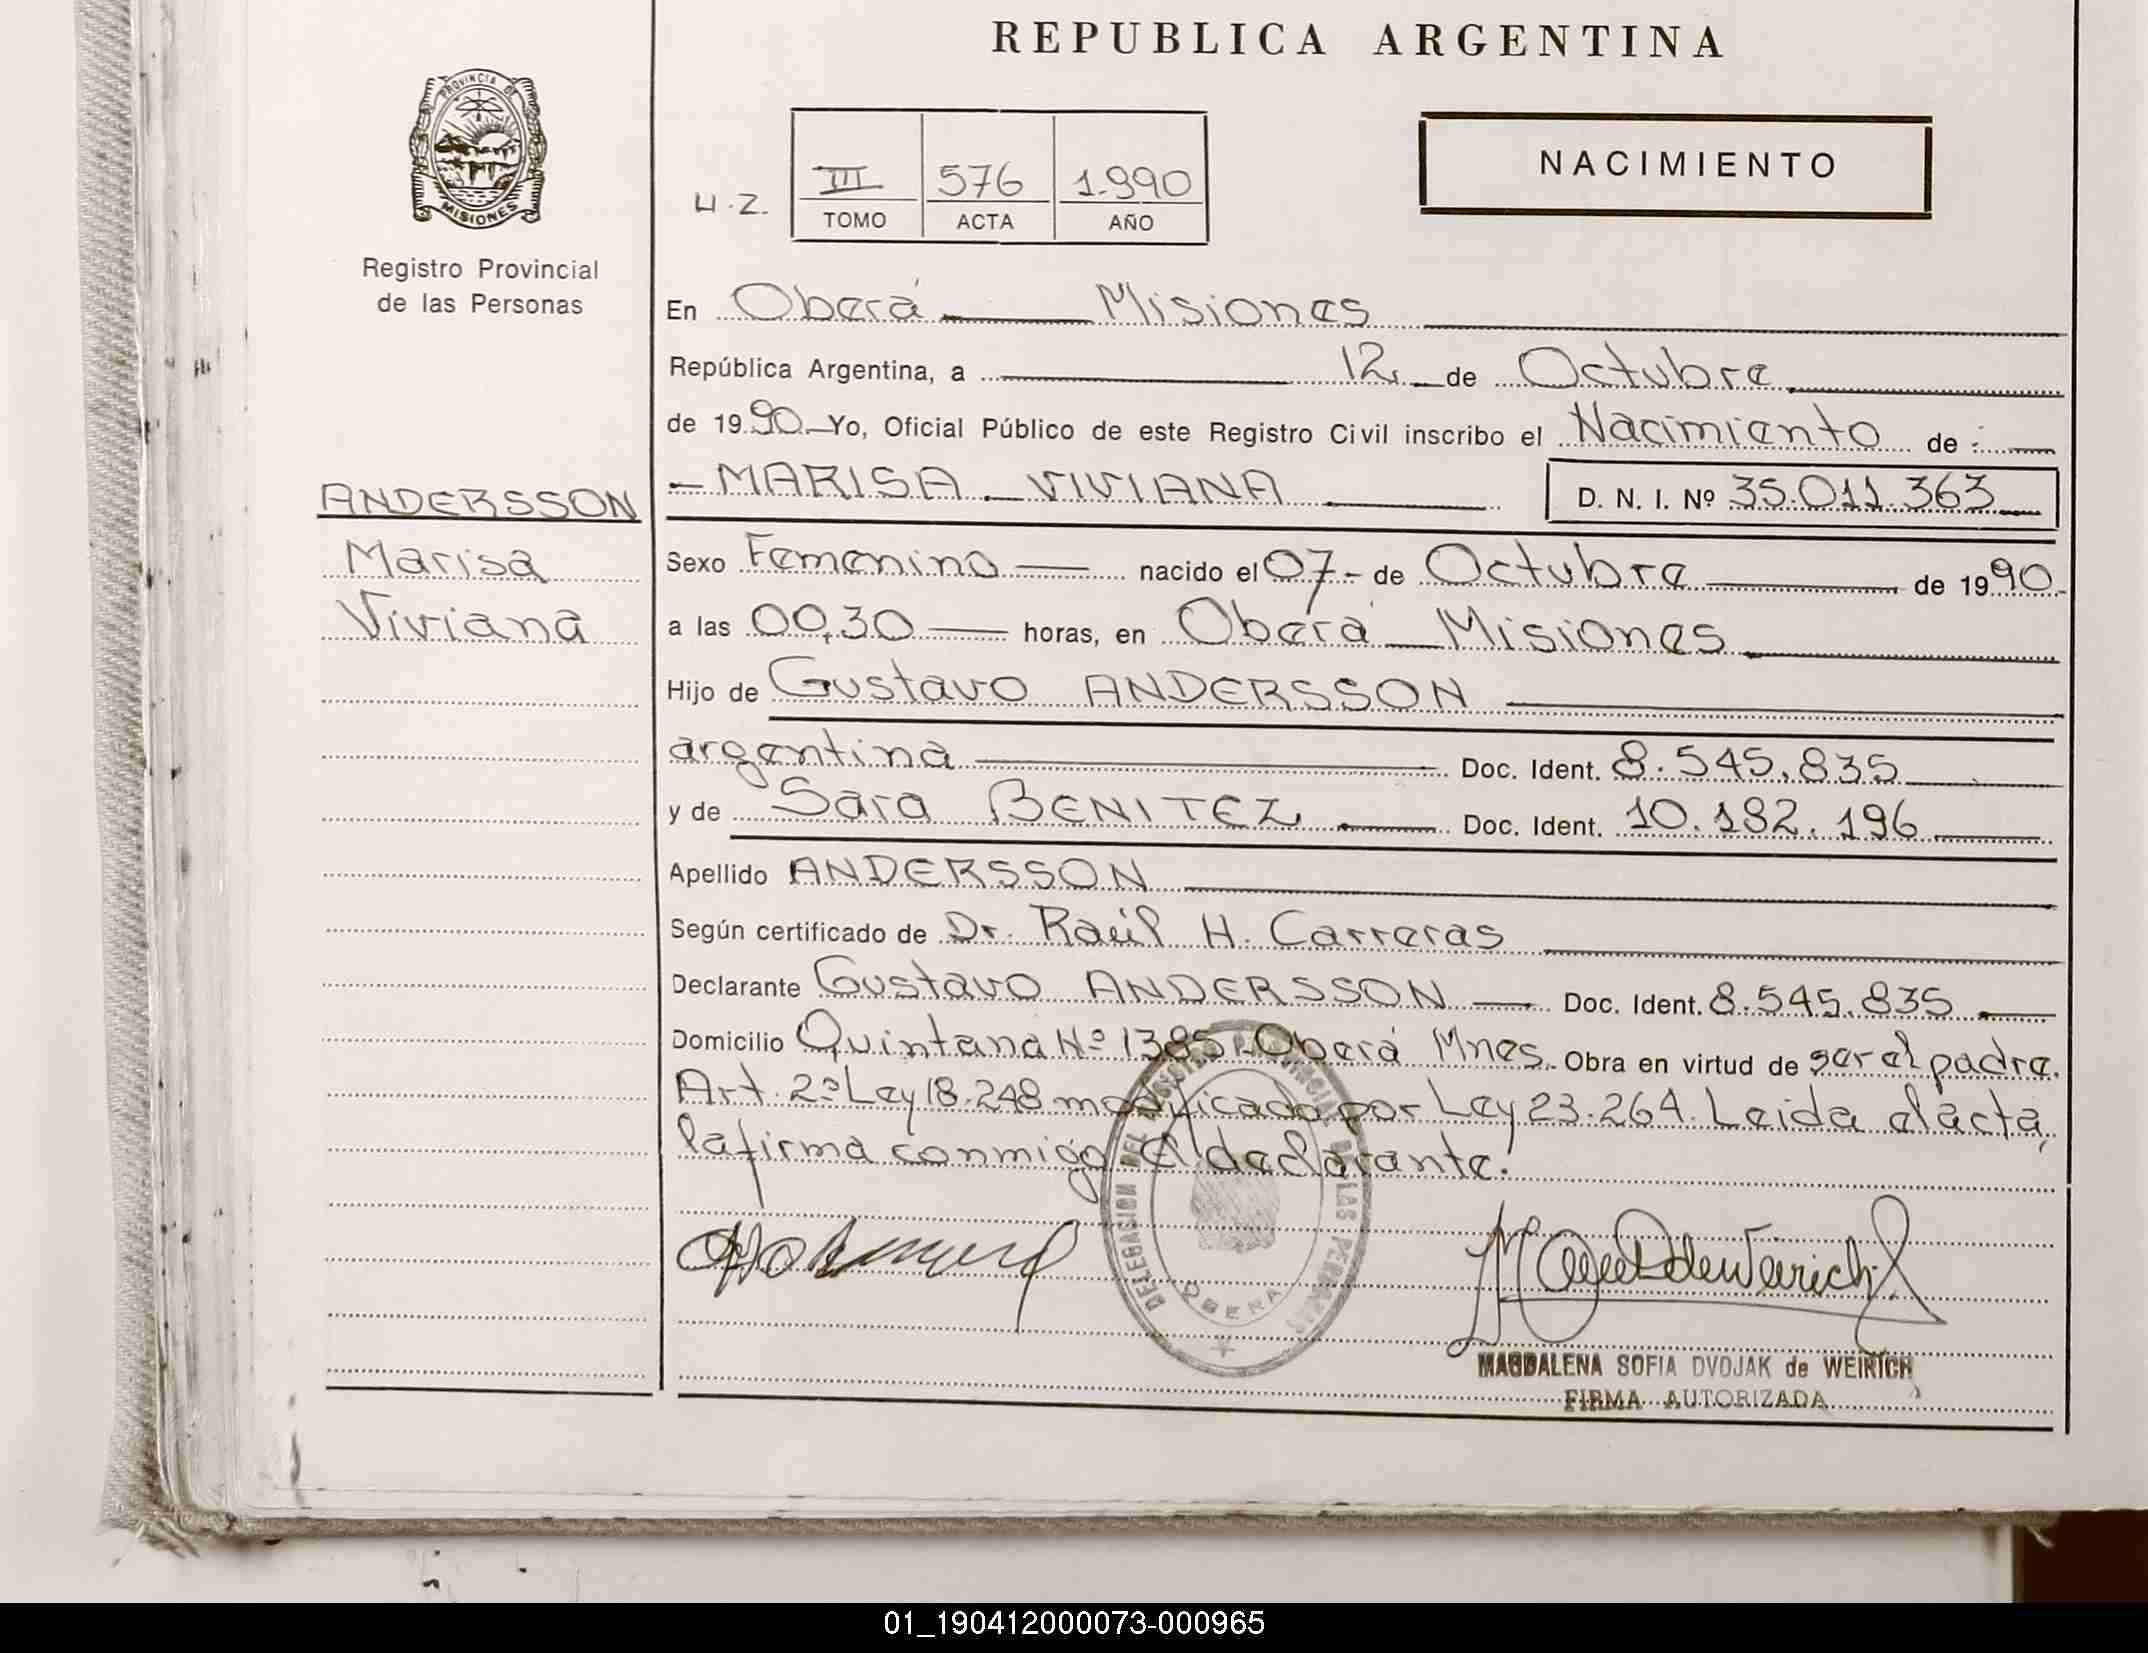 REPUBLICA ARGENTINA
PROVINCIA DE
MISIONES
Registro Provincial
de las Personas
NACIMIENTO
III 576 1.990
TOMO ACTA AÑO
En Oberá Misiones
República Argentina, a 12 de Octubre
de 1990 Yo, Oficial Público de este Registro Civil inscribo el Nacimiento de:
MARISA VIVIANA D. N. I. Nº 35.011.363
ANDERSSON
Marisa
Viviana
Sexo Femenino nacido el 07 de Octubre de 1990
a las 00,30 horas, en Oberá Misiones
Hijo de Gustavo ANDERSSON
argentina Doc. Ident. 8.545.835
y de Sara BENITEZ Doc. Ident. 10.182.196
Apellido ANDERSSON
Según certificado de Dr. Raúl H. Carreras
Declarante Gustavo ANDERSSON Doc. Ident. 8.545.835
Domicilio Quintana Nº 1385 - Oberá Mnes. Obra en virtud de ser el padre.
Art. 2º Ley 18.248 modificado por Ley 23.264. Leida el acta,
la firma conmigo el declarante.
DELEGACION DEL REGISTRO PROVINCIAL DE LAS PERSONAS
OBERA
MAGDALENA SOFIA DVOJAK de WEIRICH
FIRMA AUTORIZADA
01_190412000073-000965